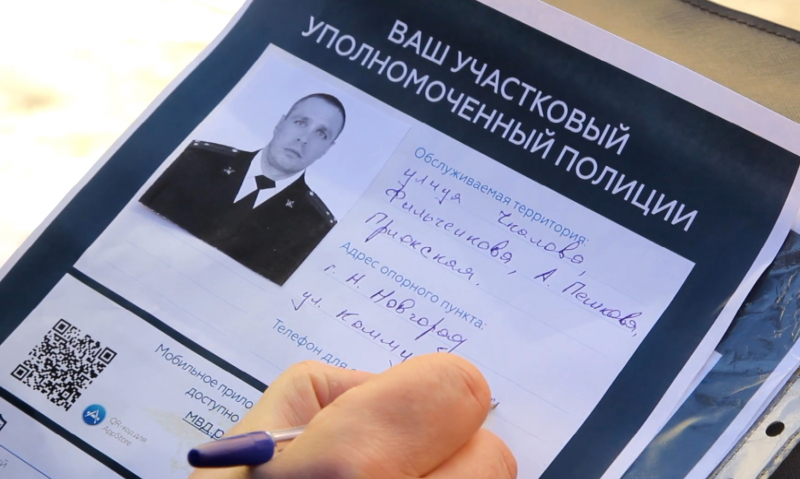 ВАШ УЧАСТКОВЫЙ
УПОЛНОМОЧЕННЫЙ ПОЛИЦИИ
Обслуживаемая территория:
улица Чкалова,
Фильченкова, А. Пешкова,
Приокская.
Адрес опорного пункта:
г. Н. Новгород
ул. Комму
Телефон для
Мобильное прило
доступно
мвд.р
QR-код для
AppStore